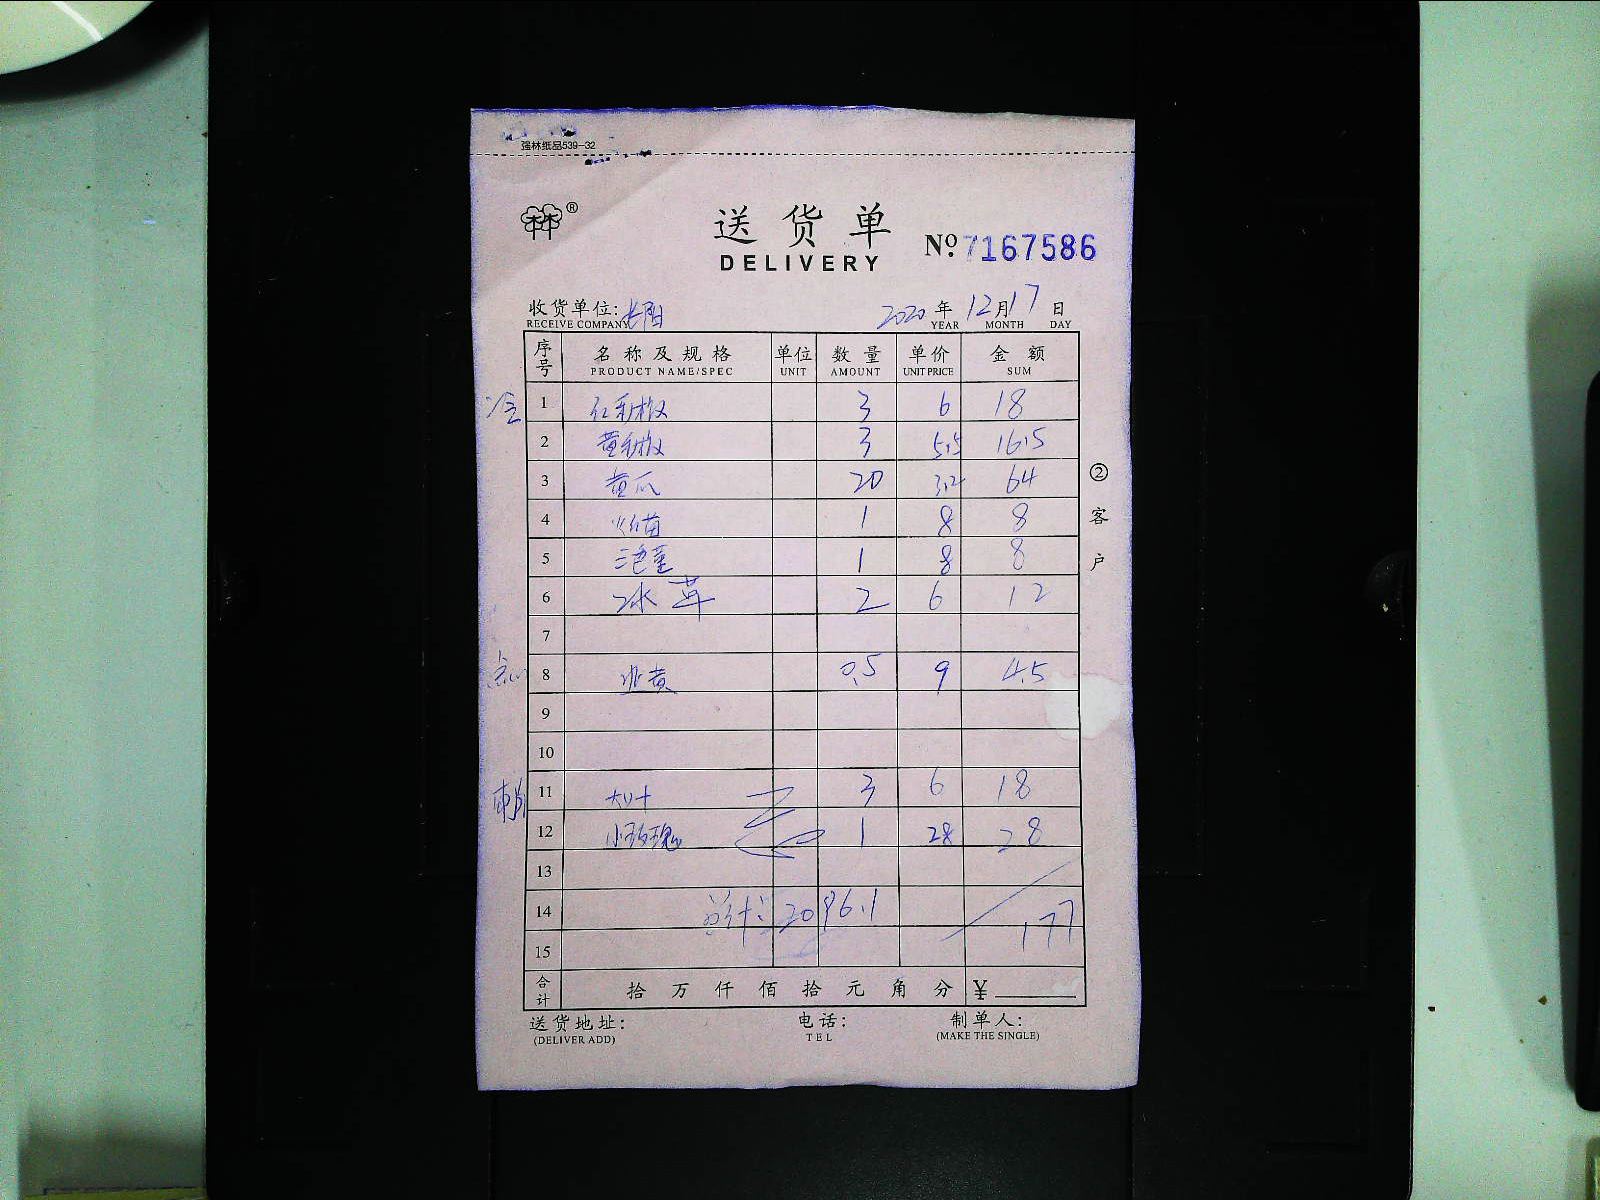 强林纸品539-32
林林®
送货单
DELIVERY
№ 7167586
收货单位: 长阳 2020年12月17日
RECEIVE COMPANY YEAR MONTH DAY
序号 名称及规格 单位 数量 单价 金额
PRODUCT NAME/SPEC UNIT AMOUNT UNIT PRICE SUM
冷 1 红彩椒 3 6 18
2 黄彩椒 3 5.5 16.5
3 黄瓜 20 3.2 64
4 1 8 8
5 三色堇 1 8 8
6 冰草 2 6 12
7
点心 8 韭黄 0.5 9 4.5
9
10
11 大叶 3 6 18
12 小玫瑰 1 28 28
13
14 总计: 2096.1 177
15
合计 拾 万 仟 佰 拾 元 角 分 ¥
送货地址: 电话: 制单人:
(DELIVER ADD) TEL (MAKE THE SINGLE)
②客户